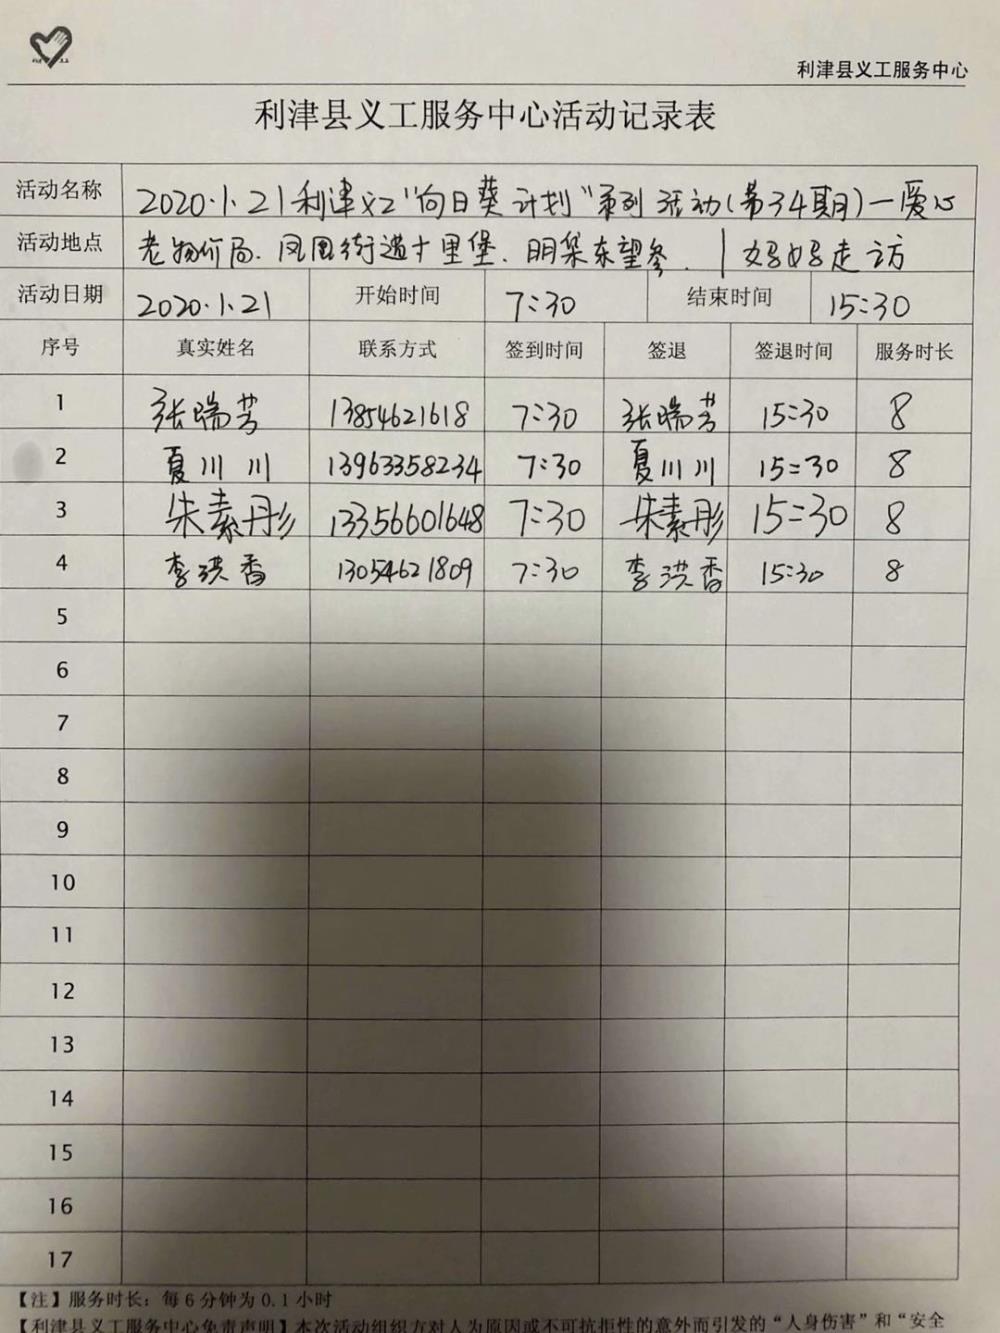 利津县义工服务中心
利津县义工服务中心活动记录表
活动名称 2020.1.21利津义工"向日葵计划"系列活动(第34期)—爱心
活动地点 老物价局.凤凰街道十里堡.明集东望参. 妈妈走访
活动日期 2020.1.21 开始时间 7:30 结束时间 15:30
序号 真实姓名 联系方式 签到时间 签退 签退时间 服务时长
1 张瑞芳 13854621618 7:30 张瑞芳 15:30 8
2 夏川川 13963358234 7:30 夏川川 15:30 8
3 朱素彤 13356601648 7:30 朱素彤 15:30 8
4 李洪香 13054621809 7:30 李洪香 15:30 8
5
6
7
8
9
10
11
12
13
14
15
16
17
【注】服务时长：每6分钟为0.1小时
【利津县义工服务中心免责声明】本次活动组织方对人为原因或不可抗拒性的意外而引发的“人身伤害”和“安全